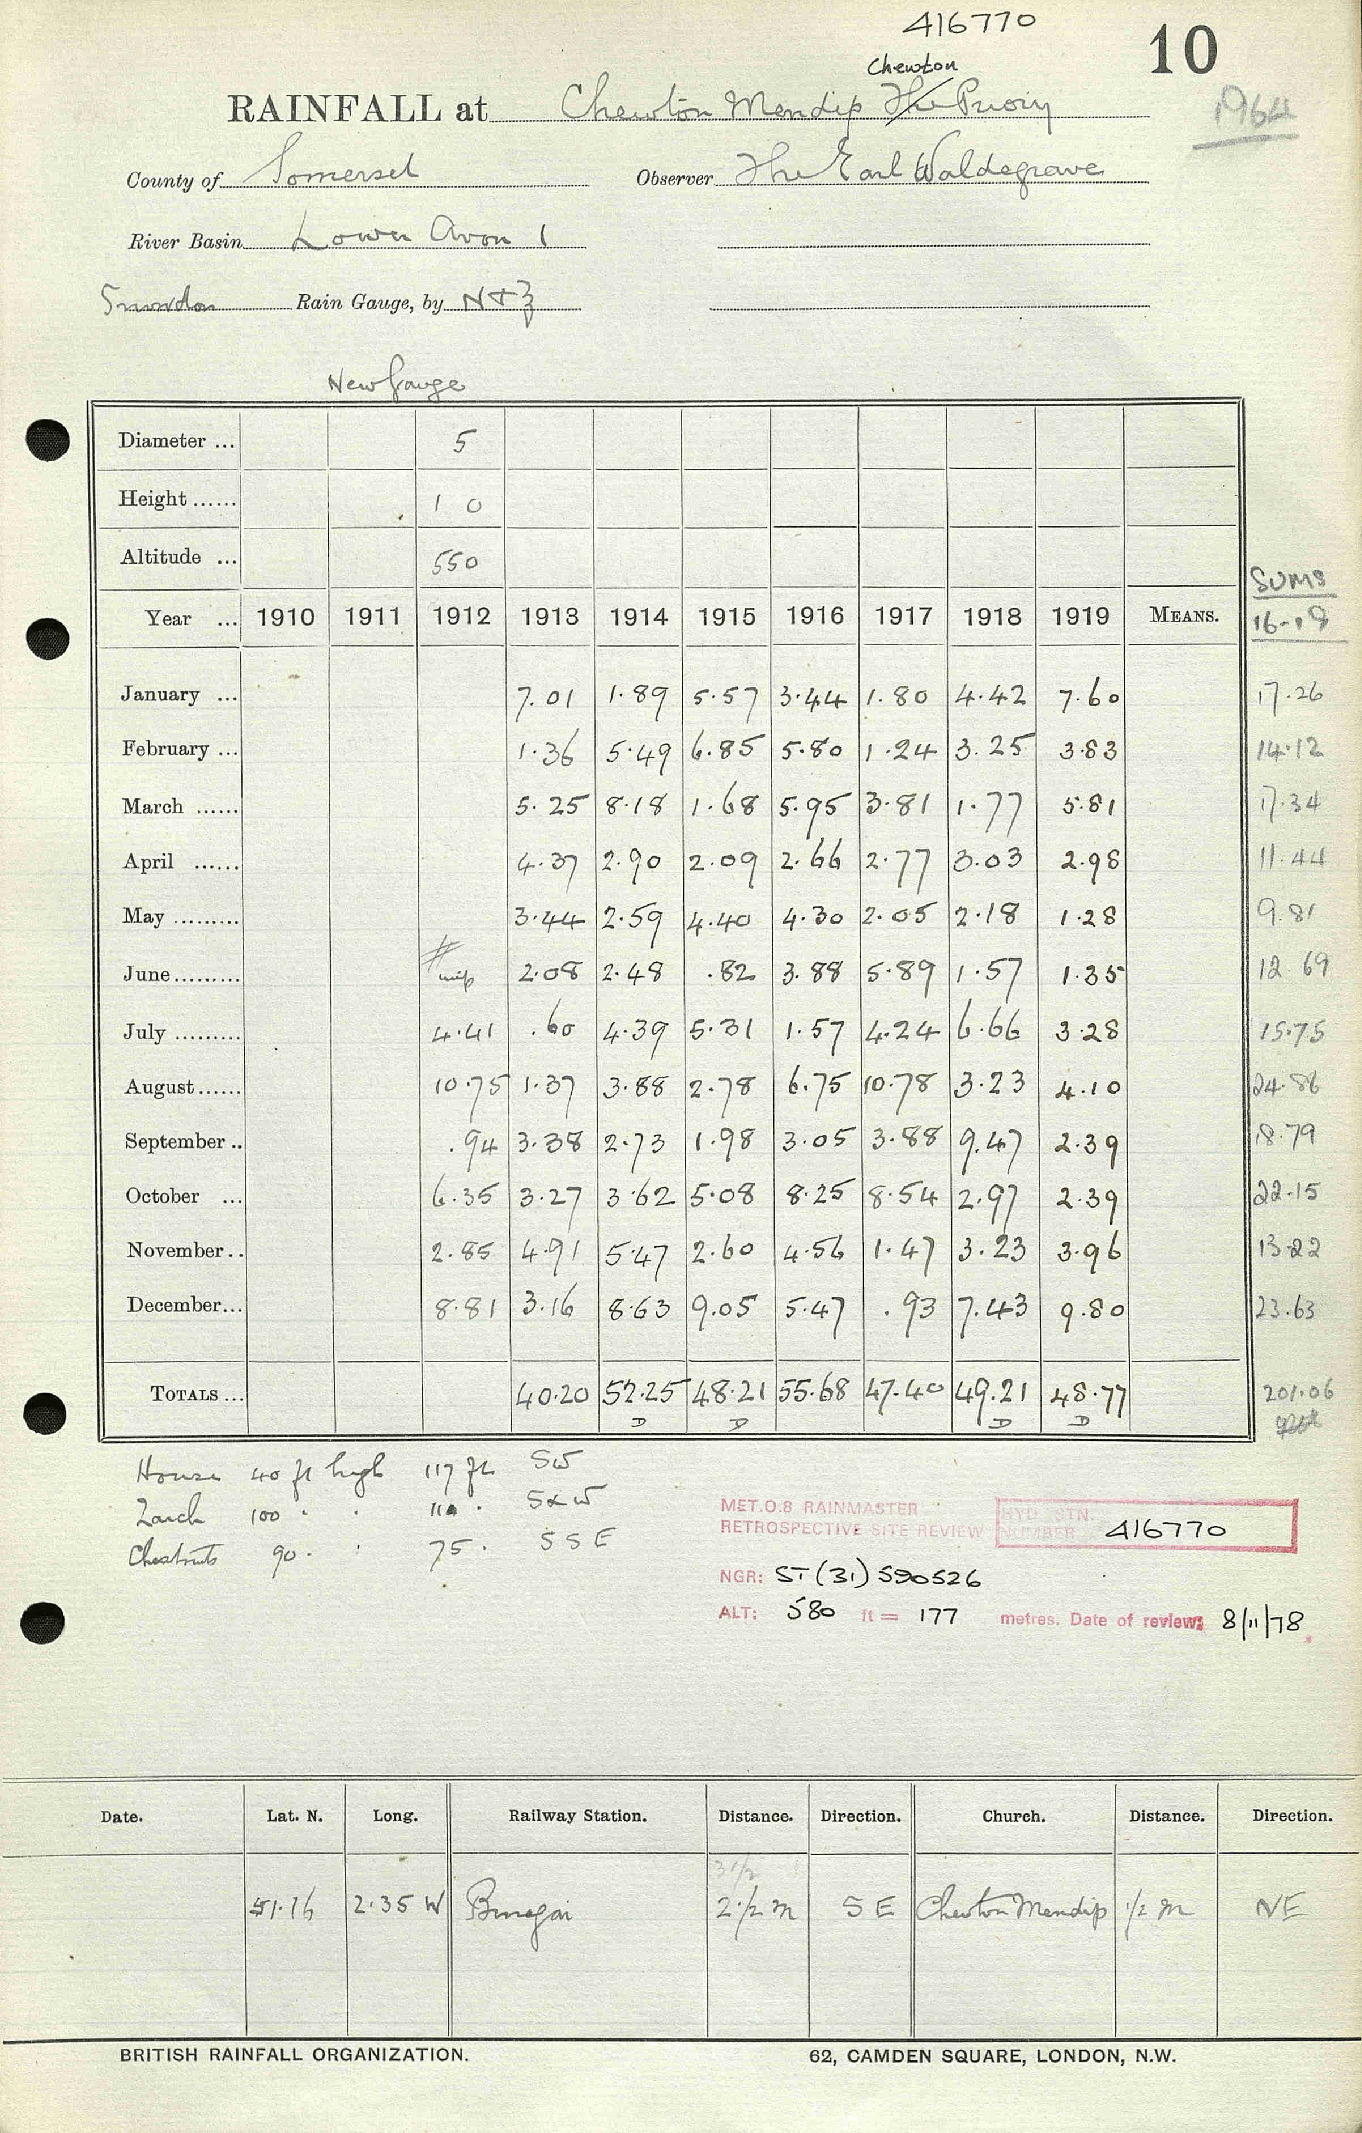 416770
10
Chewton
RAINFALL at Chewton Mendip The Priory
1964
County of Somerset Observer The Earl Waldegrave
River Basin Lower Avon 1
Snowdon Rain Gauge, by N+Z
New Gauge
Diameter ... 5
Height ...... 1 0
Altitude ... 550
SUMS
Year ... 1910 1911 1912 1913 1914 1915 1916 1917 1918 1919 MEANS. 16-19
January ... 7.01 1.89 5.57 3.44 1.80 4.42 7.60 17.26
February ... 1.36 5.49 6.85 5.80 1.24 3.25 3.83 14.12
March ...... 5.25 8.18 1.68 5.95 3.81 1.77 5.81 17.34
April ...... 4.37 2.90 2.09 2.66 2.77 3.03 2.98 11.44
May ......... 3.44 2.59 4.40 4.30 2.05 2.18 1.28 9.81
June ......... 2.08 2.48 .82 3.88 5.89 1.57 1.35 12.69
July ......... 4.41 .60 4.39 5.31 1.57 4.24 6.66 3.28 15.75
August ...... 10.75 1.37 3.88 2.78 6.75 10.78 3.23 4.10 24.86
September .. .94 3.38 2.73 1.98 3.05 3.88 9.47 2.39 18.79
October ... 6.35 3.27 3.62 5.08 8.25 8.54 2.97 2.39 22.15
November .. 2.85 4.91 5.47 2.60 4.56 1.47 3.23 3.96 13.22
December ... 8.81 3.16 8.63 9.05 5.47 .93 7.43 9.80 23.63
TOTALS ... 40.20 52.25 48.21 55.68 47.40 49.21 48.77 201.06
D D D D
House 40 ft high 117 ft SW
Larch 100 " " 110 " S x W
Chestnuts 90 " " 75 " S S E
MET.O.8 RAINMASTER
RETROSPECTIVE SITE REVIEW
HYD. STN. NUMBER 416770
NGR: ST (31) 590526
ALT: 580 ft = 177 metres. Date of review: 8/11/78
Date. Lat. N. Long. Railway Station. Distance. Direction. Church. Distance. Direction.
3 1/2
51.16 2.35 W Binegar 2 1/2 m S E Chewton Mendip 1/2 m NE
BRITISH RAINFALL ORGANIZATION. 62, CAMDEN SQUARE, LONDON, N.W.